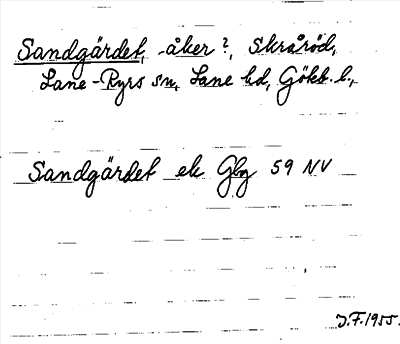 Sandgärdet, åker?, Skråröd,
Lane-Ryrs sn, Lane hd, Gökb. l.,
Sandgärdet ek Gbg 59 NV
J.F. 1955.